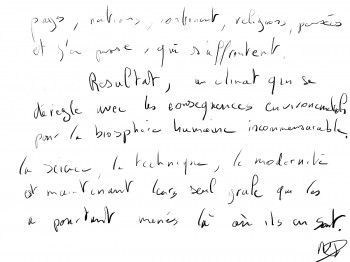 pays, nations, continent, religions, pensées
et j'en passe, qui s'affrontent.
Resultat, un climat qui se
dérègle avec les consequences environnementales
pour la biosphère humaine incommensurable.
la science, la technique, la modernité
et maintenant leurs seul grale qui les
a pourtant menés là où ils en sont.